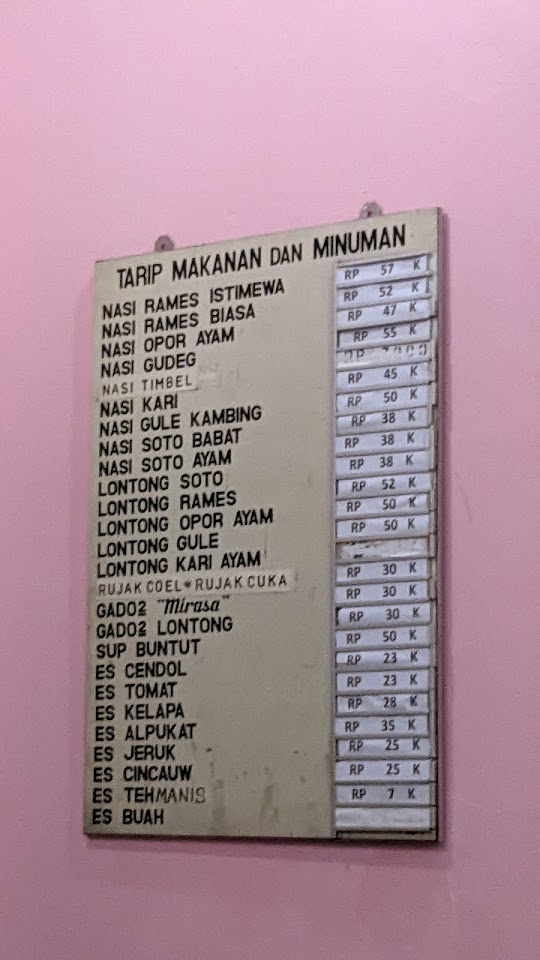 TARIP MAKANAN DAN MINUMAN
NASI RAMES ISTIMEWA RP 57 K
NASI RAMES BIASA RP 52 K
NASI OPOR AYAM RP 47 K
NASI GUDEG RP 55 K
NASI TIMBEL RP
NASI KARI RP 45 K
NASI GULE KAMBING RP 50 K
NASI SOTO BABAT RP 38 K
NASI SOTO AYAM RP 38 K
LONTONG SOTO RP 38 K
LONTONG RAMES RP 52 K
LONTONG OPOR AYAM RP 50 K
LONTONG GULE RP 50 K
LONTONG KARI AYAM
RUJAK COEL*RUJAK CUKA RP 30 K
GADO2 "Mirasa" RP 30 K
GADO2 LONTONG RP 30 K
SUP BUNTUT RP 50 K
ES CENDOL RP 23 K
ES TOMAT RP 23 K
ES KELAPA RP 28 K
ES ALPUKAT RP 35 K
ES JERUK RP 25 K
ES CINCAUW RP 25 K
ES TEHMANIS RP 7 K
ES BUAH